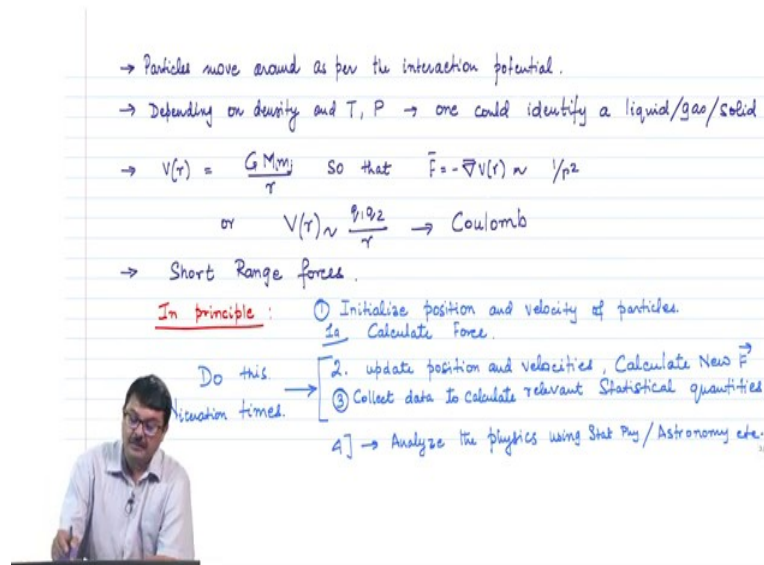 → Particles move around as per the interaction potential.
→ Depending on density and T, P → one could identify a liquid/gas/solid
→ V(r) = G M m_j / r so that F̄ = -∇̄V(r) ~ 1/r²
or V(r) ~ q₁q₂ / r → Coulomb
→ Short Range forces.
In principle : ① Initialize position and velocity of particles.
1a Calculate Force.
Do this → 2. update position and velocities, Calculate New F⃗
Niteration times. ③ Collect data to calculate relevant Statistical quantities
4] → Analyze the physics using Stat Phy / Astronomy etc.